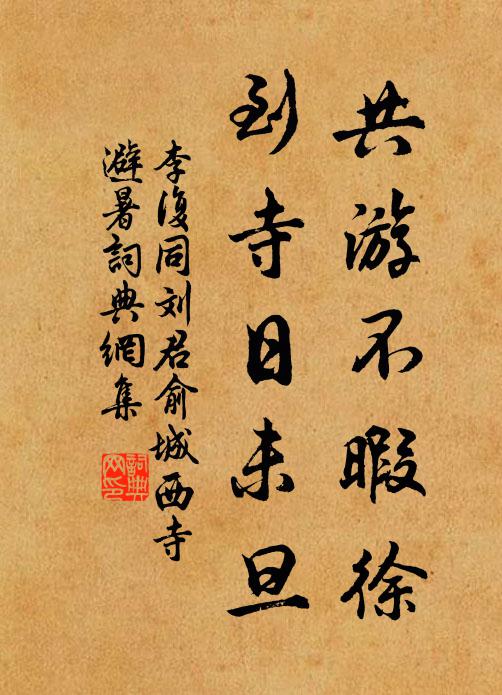 共游不暇徐
到寺日未旦
李復同刘君俞城西寺
避暑詞典網集
詞典网印